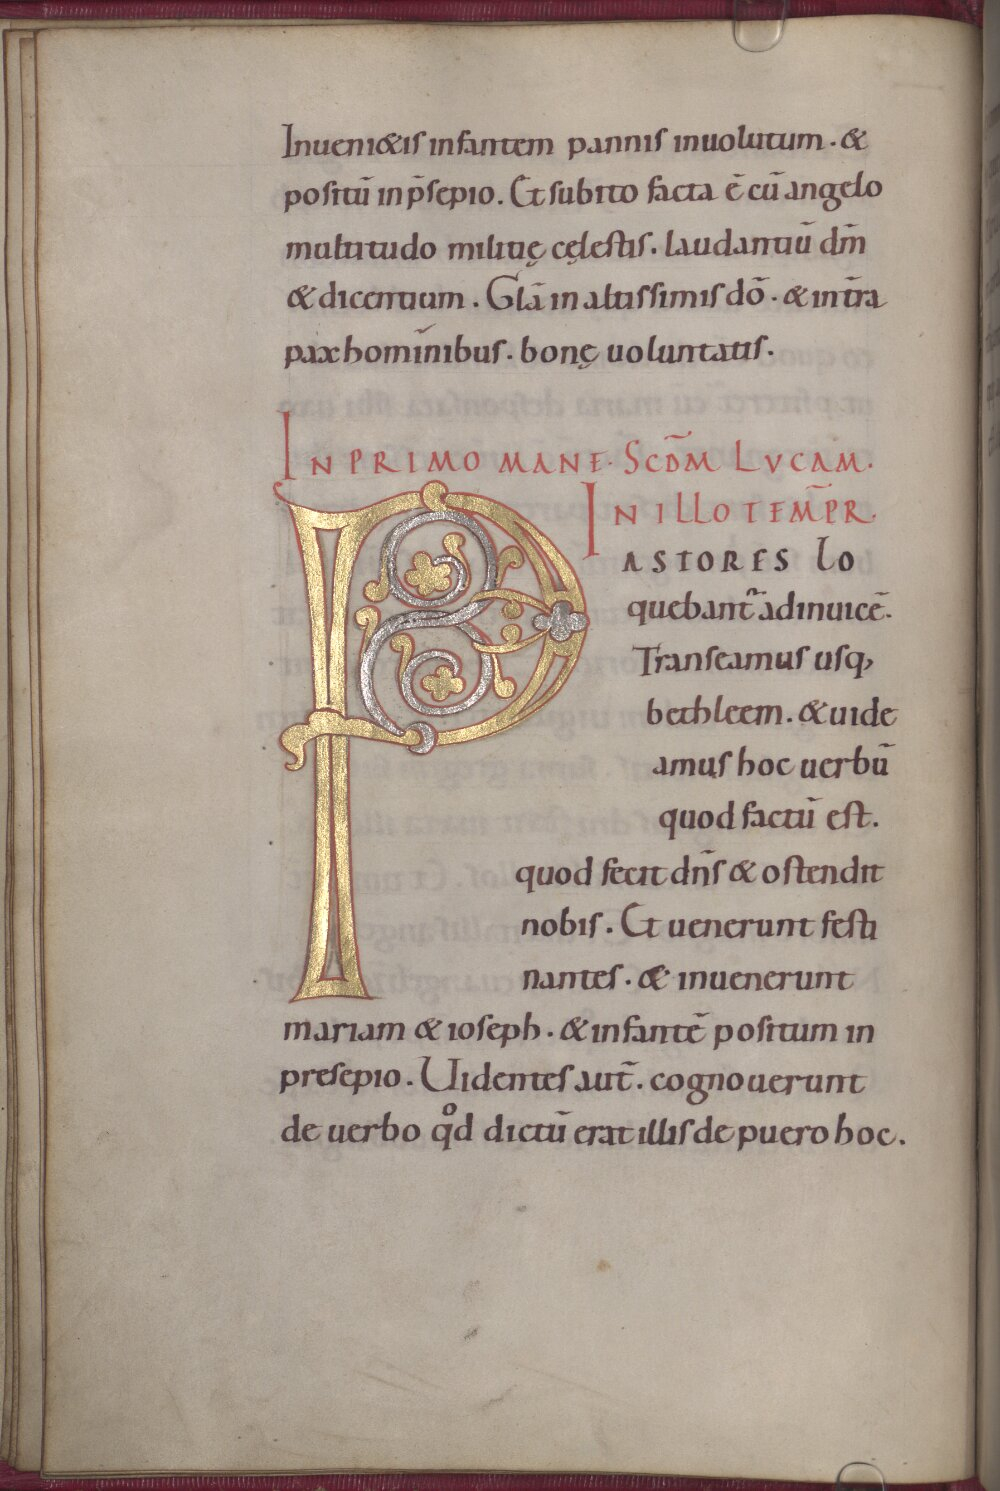 Inueni&is infantem pannis inuolutum . &
positū in p̄sepio . Et subito facta ē cū angelo
multitudo militię cęlestis . laudantiū dm̄
& dicentium . Glā in altissimis dō . & in tr̄a
pax hominibus . bonę uoluntatis .
IN PRIMO MANE . SCDM̄ LVCAM .
IN ILLO TEMPR̄ .
PASTORES lo
quebant᷑ adinuicē .
Transeamus usq;
bethleem . & uide
amus hoc uerbū
quod factū est .
quod fecit dn̄s & ostendit
nobis . Et uenerunt festi
nantes . & inuenerunt
mariam & ioseph . & infantē positum in
presepio . Uidentes aut̄ . cognouerunt
de uerbo qͦd dictū erat illis de puero hoc .